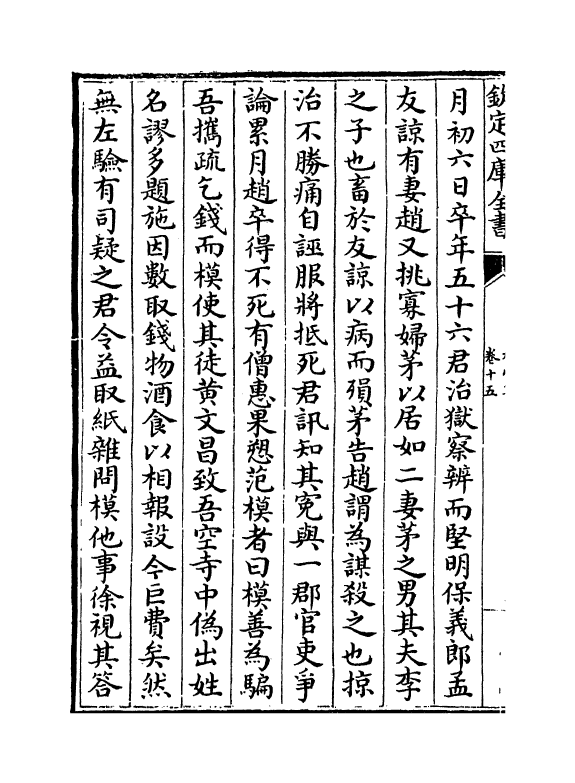 欽定四庫全書
卷十五
月初六日卒年五十六君治獄察辨而堅明保義郎孟
友諒有妻趙又挑寡婦茅以居如二妻茅之男其夫李
之子也畜於友諒以病而殞茅告趙謂為謀殺之也掠
治不勝痛自誣服將抵死君訊知其寃與一郡官吏爭
論累月趙卒得不死有僧惠果愬范模者曰模善為騙
吾攜疏乞錢而模使其徒黄文昌致吾空寺中偽出姓
名謬多題施因數取錢物酒食以相報設今巨費矣然
無左驗有司疑之君令益取紙雜問模他事徐視其答